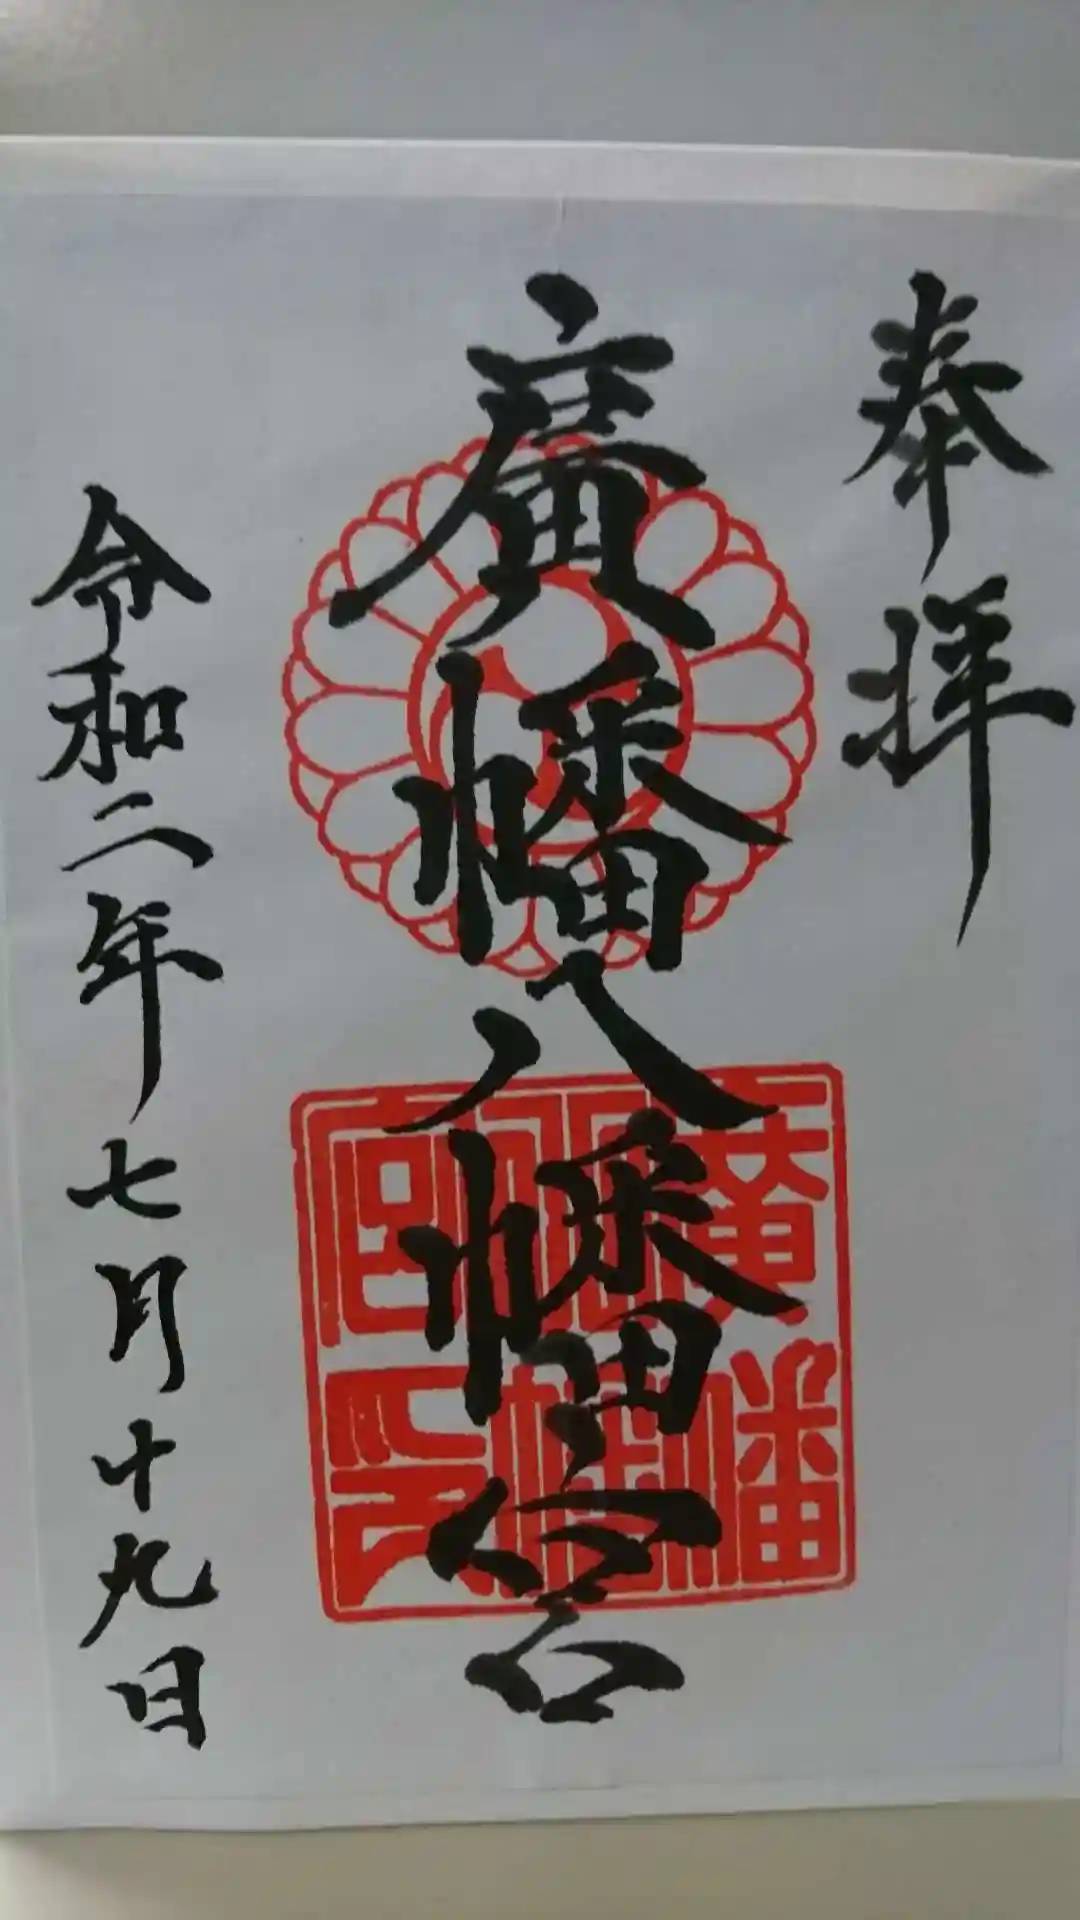 奉拝
廣幡八幡宮
廣幡
八幡
宮印
令和二年七月十九日